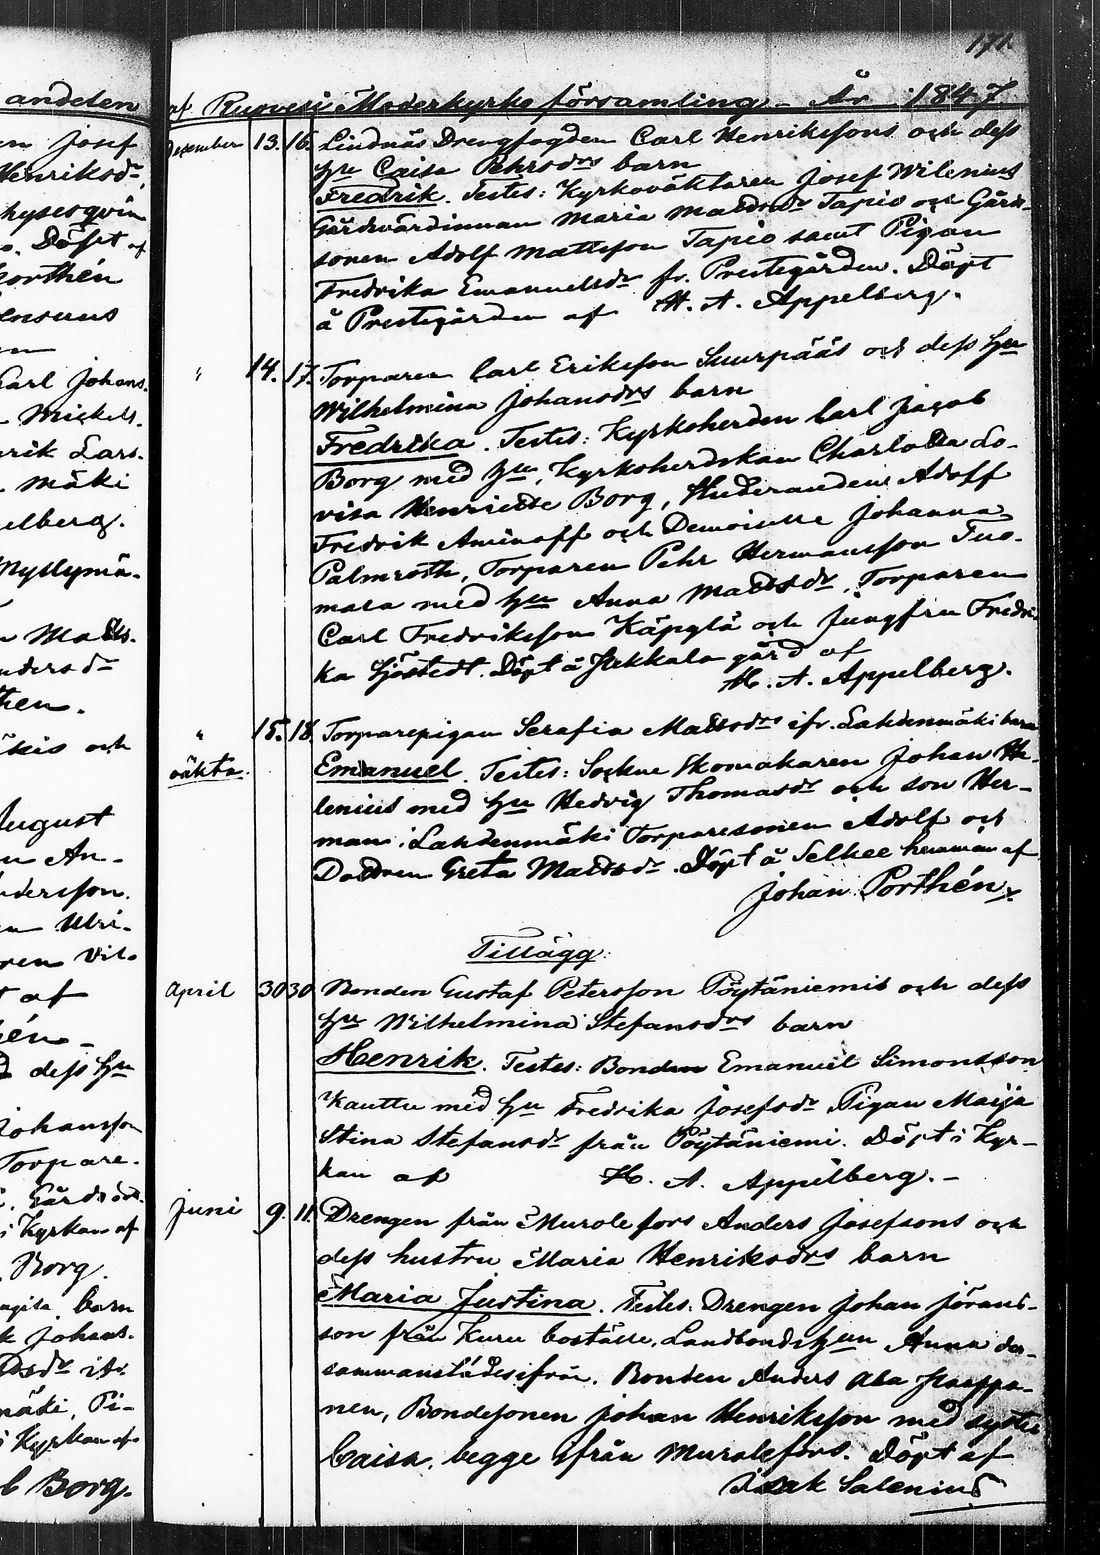 171.
af Ruovesi Moderkyrko församling – År 1847
December 13. 16. Lindnäs Drengfogden Carl Henrikssons och dess
hu Caisa Pehrsdrs barn
Fredrik. Testes: Kyrkoväktaren Josef Wilenius
Gårdvärdinnan Maria Mattsdr Tapio och Gårds-
sonen Adolf Mattsson Tapio samt Pigan
Fredrika Emanuelsdr fr. Prestegården. Döpt
å Prestegården af H. A. Appelberg.
" 14. 17. Torparen Carl Eriksson Suurpääs och dess hu
Wilhelmina Johansdrs barn
Fredrika. Testes: Kyrkoherden Carl Jacob
Borg med hu, Kyrkoherdskan Charlotta Lo-
visa Henriette Borg, Studeranden Adolf
Fredrik Aminoff och Demoiselle Johanna
Palmroth, Torparen Pehr Hermansson Tuo-
mara med hu Anna Mattsdr, Torparen
Carl Fredriksson Käpylä och Jungfru Fredri-
ka Sjöstedt. Döpt å Pekkala gård af
H. A. Appelberg.
" 15. 18. Torparepigan Serafia Mattsdrs ifr. Lahdenmäki barn
oäkta. Emanuel. Testes: Sockne Skomakaren Johan He-
lenius med hu Hedvig Thomasdr och son Her-
man, Lahdenmäki Torparesonen Adolf och
Dottren Greta Mattsdr. Döpt å Selkee hemman af
Johan Porthén
Tillägg:
April 30 30 Bonden Gustaf Petersson Pöytäniemis och dess
hu Wilhelmina Stefansdrs barn
Henrik. Testes: Bonden Emanuel Simonsson
Kauttu med hu Fredrika Josefsdr Pigan Maija
Stina Stefansdr från Pöytäniemi. Döpt i Kyr-
kan af H. A. Appelberg. –
Juni 9. 11. Drengen från Murole fors Anders Josefsons och
dess hustru Maria Henriksdrs barn
Maria Justina. Testes: Drengen Johan Jörans-
son från Kuru boställe, Landbonds hun Anna der-
sammanstädesifrån. Bonden Anders Ala
nen, Bondesonen Johan Henriksson med syster
Caisa, begge från Murolefors. Döpt af
Isak Salenius